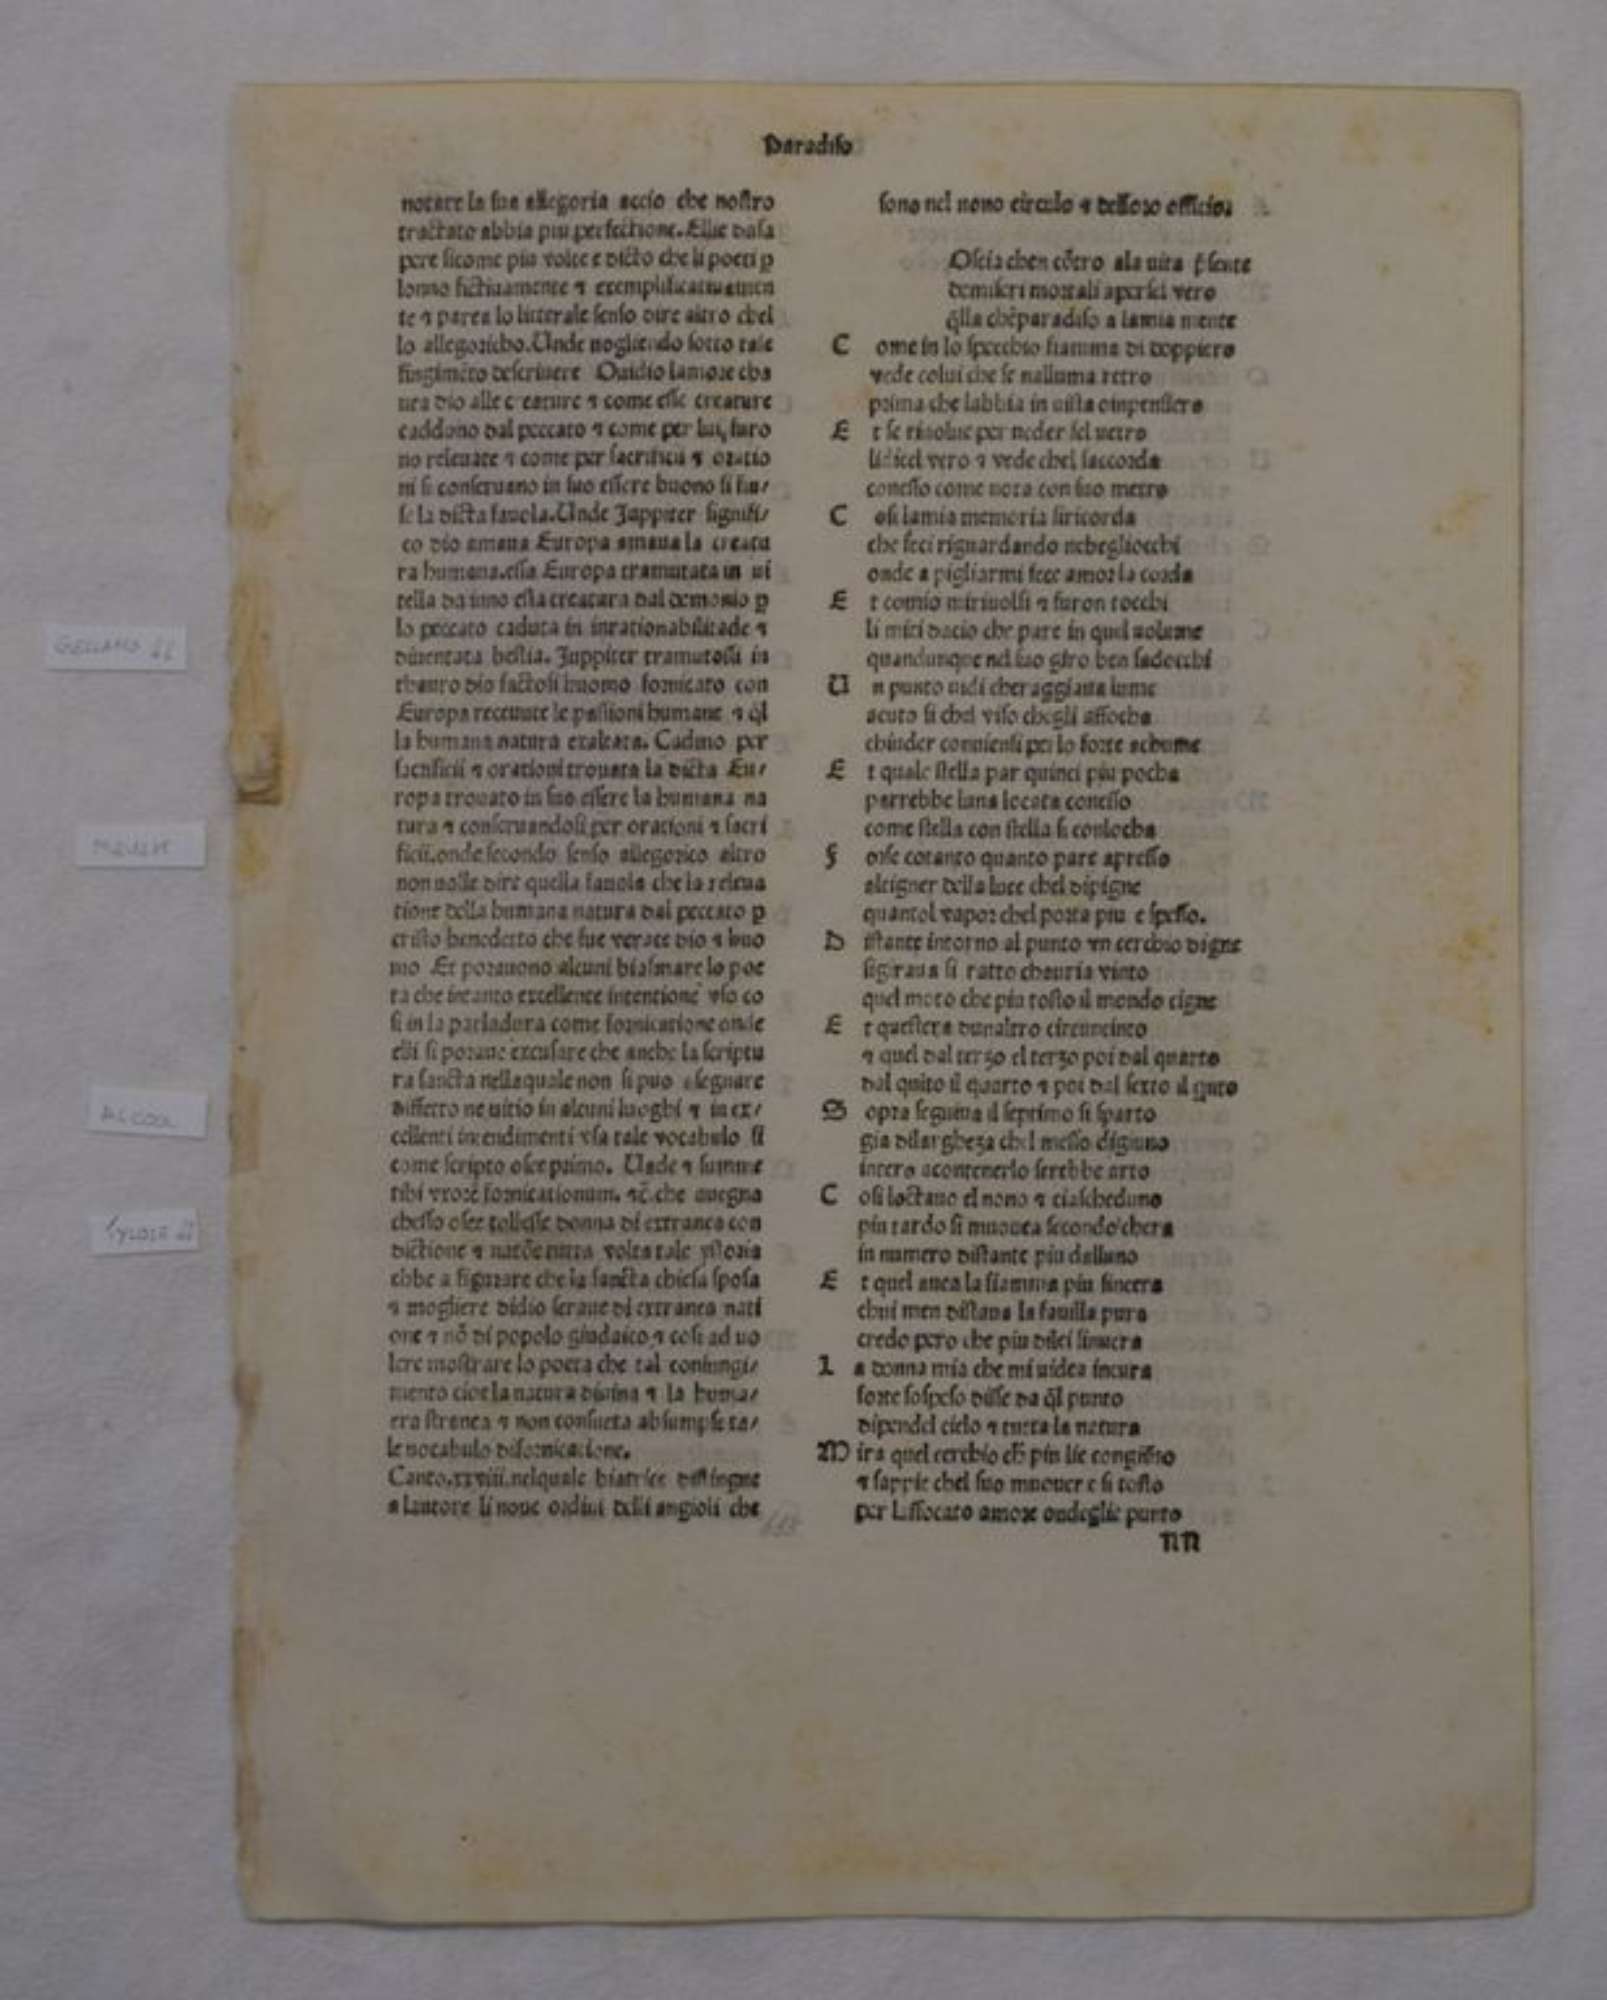 Paradiso
notare la sua allegoria accio che nostro
tractato abbia piu perfectione. Ellie dasa
pere sicome piu volte e dicto che li poeti p
lonno fictiuamente ⁊ exemplificatiuamen
te ⁊ parea lo litterale senso dire altro chel
lo allegoricho. Unde uogliendo sotto tale
fingimēto descriuere Ouidio lamore cha
uea dio alle creature ⁊ come esse creature
caddono dal peccato ⁊ come per lui furo
no releuate ⁊ come per sacrificii ⁊ oratio
ni si conseruano in suo essere buono si fin/
se la dicta fauola. Unde Juppiter signifi/
co dio amaua Europa amaua la creatu
ra humana. essa Europa tramutata in ui
tella da inno esta creatura dal demonio p
lo peccato caduta in inrationabilitade ⁊
diuentata bestia. Juppiter tramutossi in
thauro dio factosi huomo fornicato con
Europa receuute le passioni humane ⁊ q̄l
la humana natura exaltata. Cadmo per
sacrificii ⁊ orationi trouata la dicta Eu/
ropa trouato in suo essere la humana na
tura ⁊ conseruandosi per orationi ⁊ sacri
ficii. onde secondo senso allegorico altro
non uolle dire quella fauola che la releua
tione della humana natura dal peccato p
cristo benedetto che fue verace dio ⁊ huo
mo Et porauono alcuni biasmare lo poe
ta che intanto excellente intentione vso co
si in la parladura come fornicatione onde
elli si porane excusare che anche la scriptu
ra sancta nellaquale non si puo asegnare
differto ne uitio in alcuni luoghi ⁊ in ex/
cellenti intendimenti vsa tale vocabulo si
come scripto osee primo. Unde ⁊ summe
tibi vxorē fornicationum. ⁊c̄. che auegna
chesso osee tollesse donna di extranea con
dictione ⁊ natōe tutta volta tale ystoria
ebbe a figurare che la sancta chiesa sposa
⁊ mogliere didio seraue di extranea nati
one ⁊ nō di popolo giudaico ⁊ cosi ad uo
lere mostrare lo poeta che tal coniungi/
mento cioe la natura diuina ⁊ la huma/
era stranea ⁊ non consueta absumpse ta/
le uocabulo difornicatione.
Canto. xxviii. nelquale biatrice distingue
a lautore li noue ordini delli angioli che
sono nel nono circulo ⁊ delloro officio.
Oscia chen cōtro ala uita p̄sente
demiseri mortali apersei vero
q̄lla chēparadiso a lamia mente
C ome in lo specchio fiamma di doppiero
vede colui che se nalluma retro
prima che labbia in uista oinpensiero
E t se riuolue per ueder sel uetro
lidicel vero ⁊ vede chel saccorda
conesso come nota con suo metro
C osi lamia memoria siricorda
che feci riguardando nebegliocchi
onde a pigliarmi fece amor la corda
E t comio miriuolsi ⁊ furon tocchi
li miei dacio che pare in quel uolume
quandunque nel suo giro ben sadocchi
U n punto uidi cheraggiaua lume
acuto si chel viso chegli affocha
chiuder conuiensi per lo forte achume
E t quale stella par quinci piu pocha
parrebbe luna locata conesso
come stella con stella si conlocha
F orse cotanto quanto pare apresso
alcigner della luce chel dipigne
quantol vapor chel porta piu e spesso.
D istante intorno al punto vn cerchio digne
sigiraua si ratto chauria vinto
quel moto che piu tosto il mondo cigne
E t questera dunaltro circuncinto
⁊ quel dal terzo el terzo poi dal quarto
dal quito il quarto ⁊ poi dal sexto il quto
S opra seguiua il septimo si sparto
gia dilargheza chel messo digiuno
intero acontenerlo serebbe arto
C osi loctauo el nono ⁊ ciascheduno
piu tardo si mouea secondo chera
in numero distante piu dalluno
E t quel auea la fiamma piu sincera
chui men distaua la fauilla pura
credo pero che piu dilei sinuera
L a donna mia che mi uidea incura
forte sospeso disse da q̄l punto
dipendel cielo ⁊ tutta la natura
M ira quel cerchio ch̄ piu lie congiūto
⁊ sappie chel suo muouer e si tosto
per Laffocato amore ondeglie punto
NN
GELLANO
ALCOOL
TYLOSE